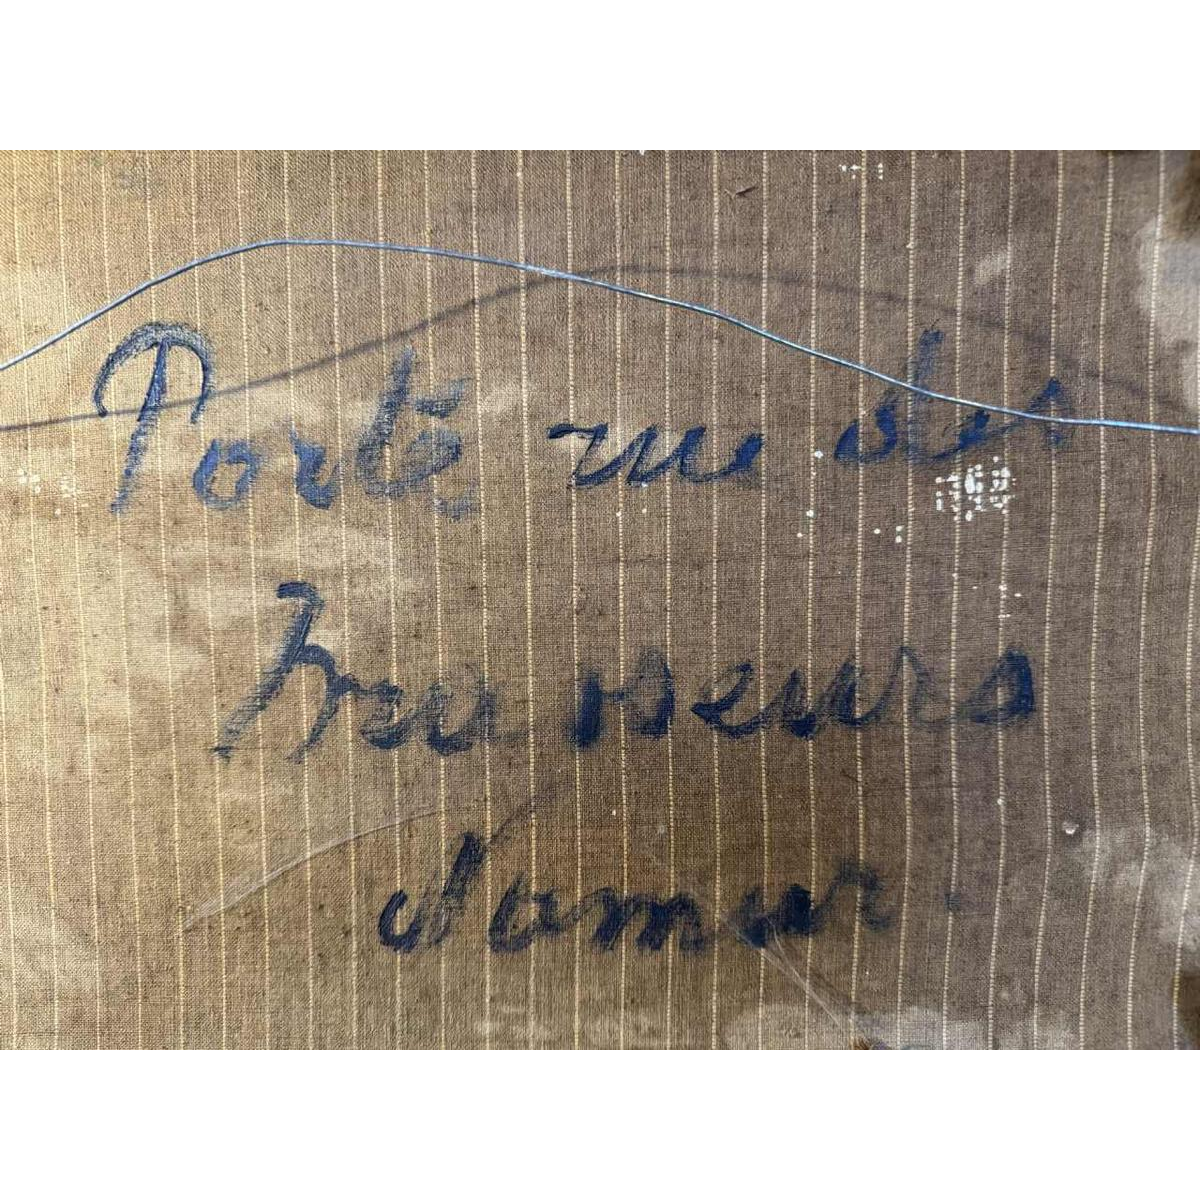 Porte rue des
Brasseurs
Namur.